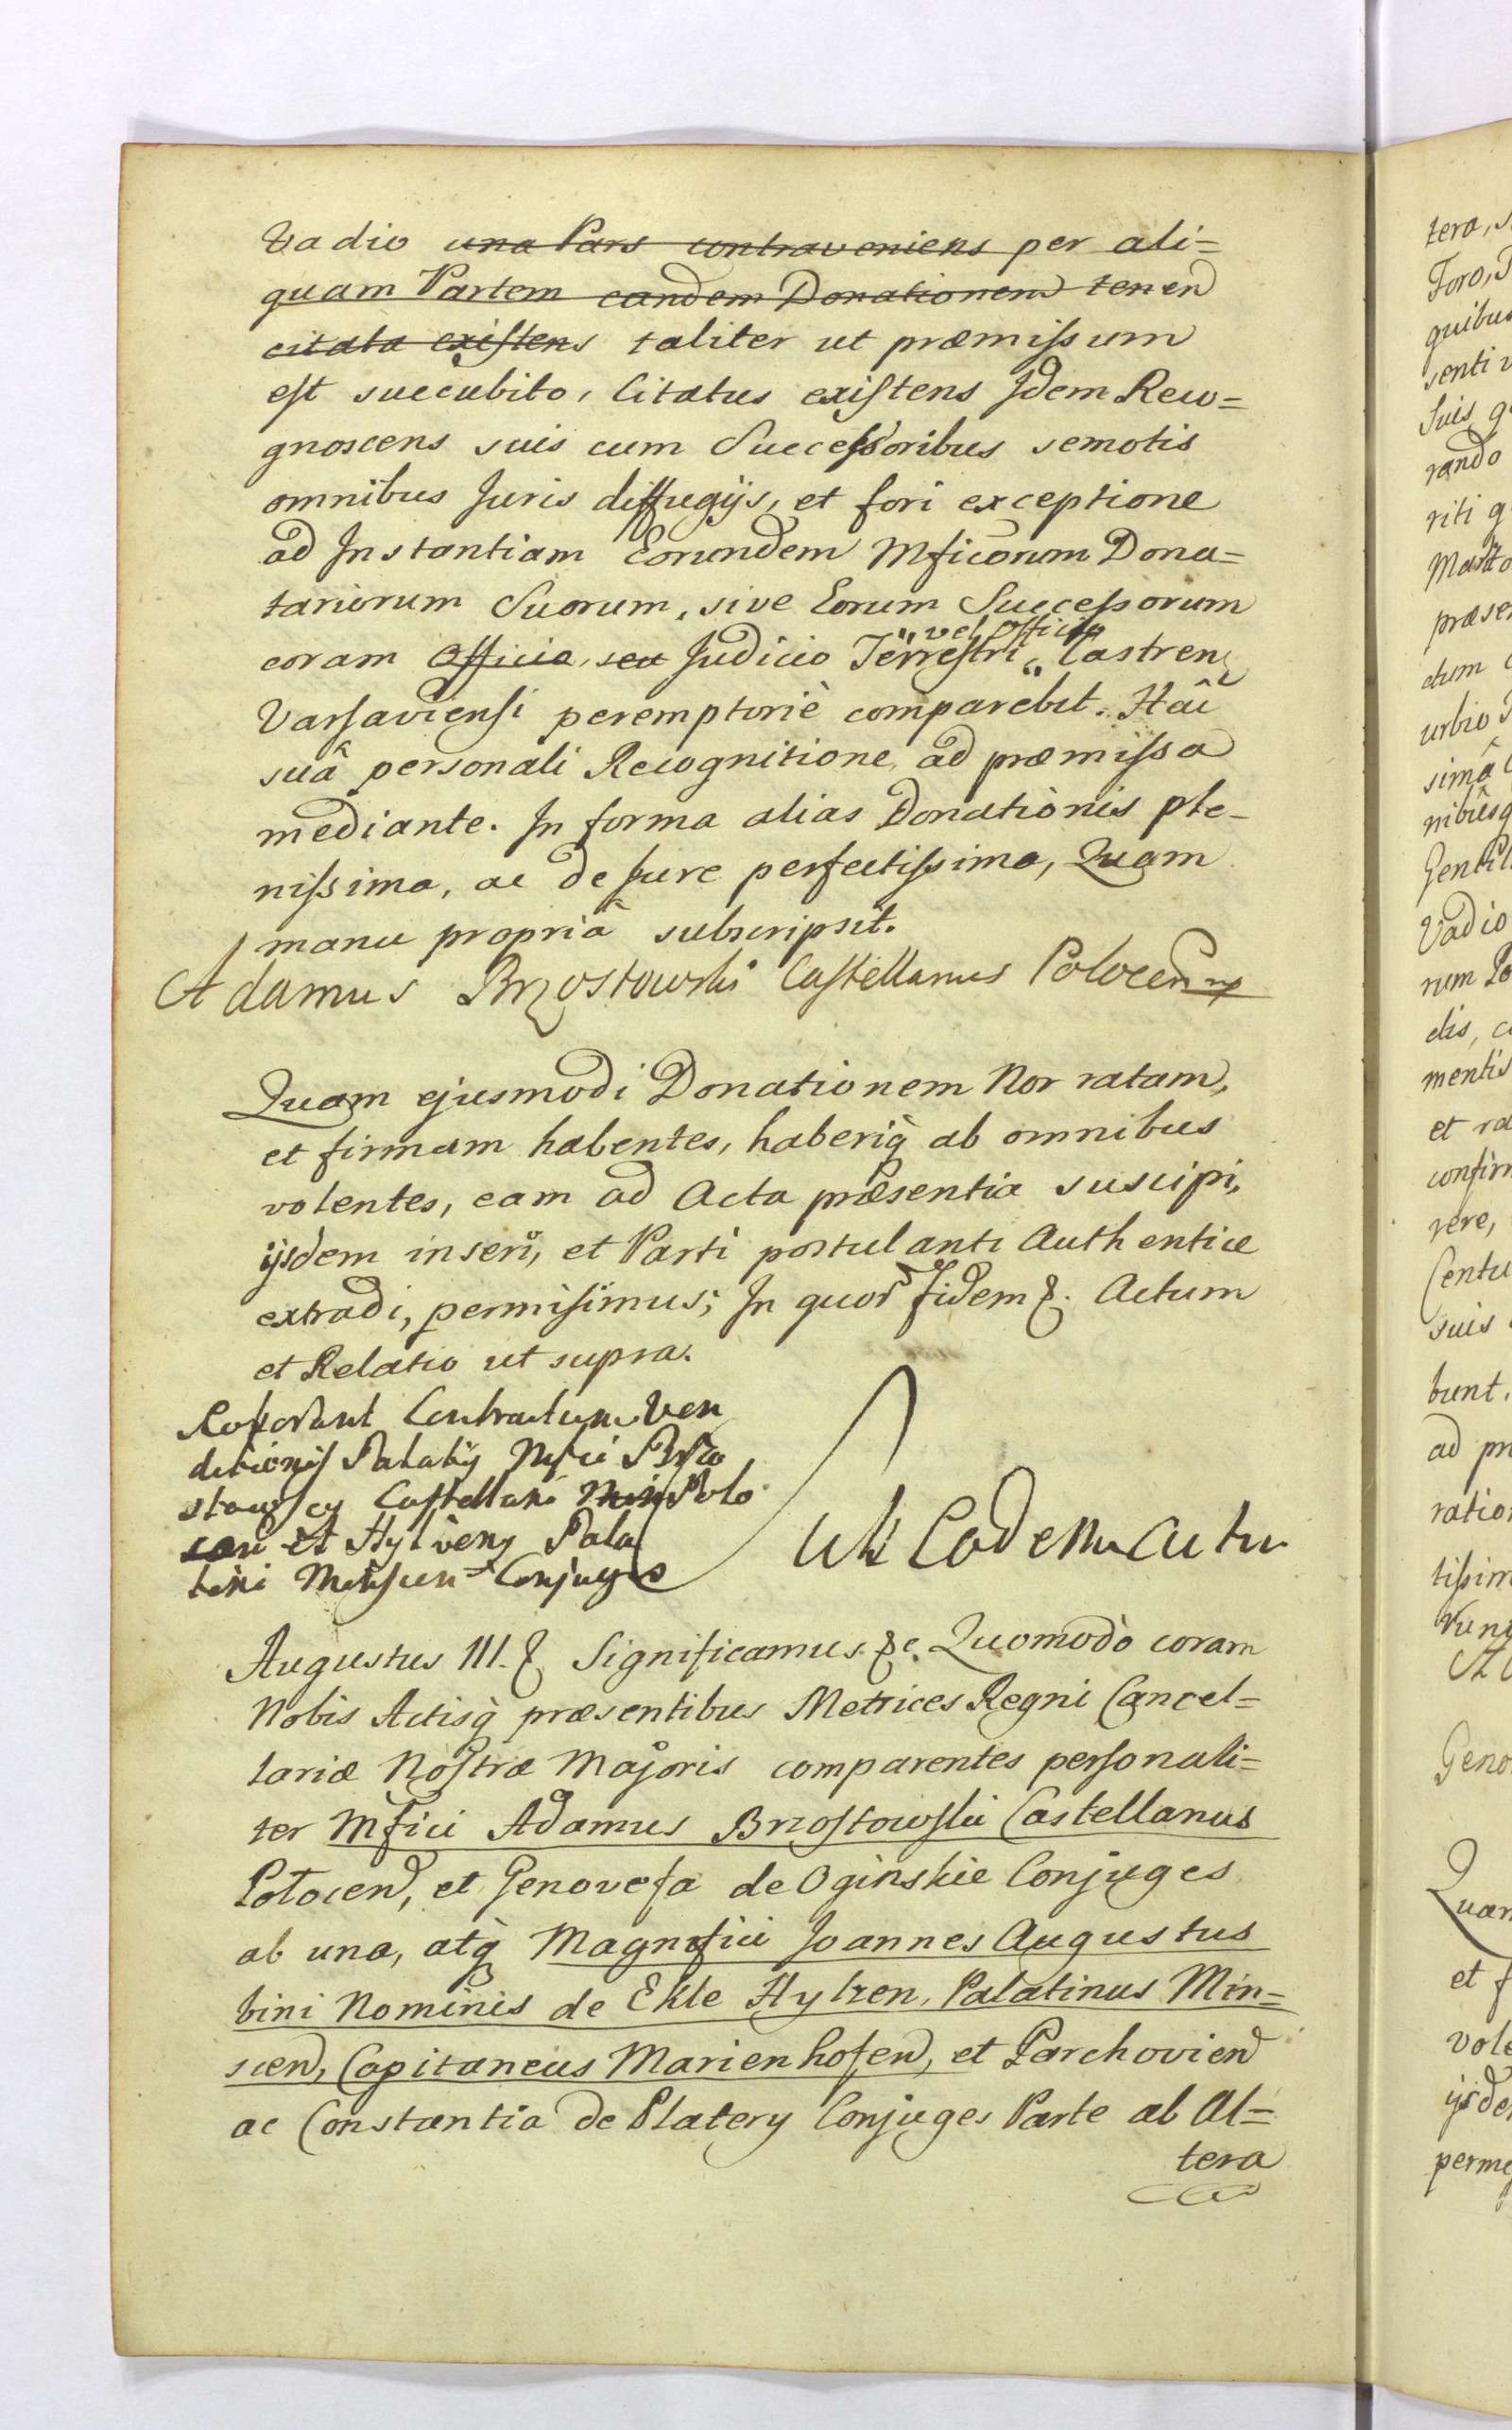 Vadio una Pars contraveniens per ali=
quam Partem eandem Donationem tenen
citata existens taliter ut præmissum
est succubito, Citatus existens Idem Reco=
gnoscens suis cum Successoribus semotis
omnibus Juris diffugijs, et fori exceptione
ad Instantiam Eorundem Mficorum Dona=
tariorum Suorum, sive Eorum Successorum
vel Officio
coram Officio, seu Judicio Terrestri Castren
Varsaviensi peremptoriè comparebit. Hâc
suâ personali Recognitione ad præmissa
mediante. In forma alias Donationis ple-
nissima, ac de Jure perfectissima, Quam
manu propriâ subscripsit.
Adamus Brzostowski Castellanus Polocen mp
Quam ejusmodi Donationem Nos ratam,
et firmam habentes, haberiq̀ ab omnibus
volentes, eam ad Acta præsentia suscipi,
ijsdem inseri, et Parti postulanti Authentice
extradi, permisimus; In quor Fidem &. Actum
et Relatio ut supra.
Roborant Contractum Ven
ditionis Palatij Mfici Brzo
stowscy Castellani Min Polo
cen et Hylzeny Pala
tini Minscen Conjuges
Uti Eodem Actu
Augustus III. & Significamus &c. Quomodò coram
Nobis Actisq̀ præsentibus Metrices Regni Cancel=
lariæ Nostræ Majoris comparentes personali=
ter Mfici Adamus Brzostowski Castellanus
Połocen, et Genovefa de Oginskie Conjuges
ab una, atq̀ Magnifici Joannes Augustus
bini Nominis de Ekle Hylzen, Palatinus Min=
scen, Capitaneus Marienhofen, et Parchovien
ac Constantia de Platery Conjuges Parte ab Al=
tera